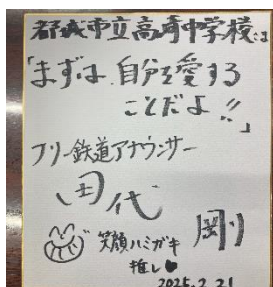 都城市立高崎中学校は
「まずは、自分を愛する
ことだよ!!」
フリー鉄道アナウンサー
田代 剛
笑顔ハミガキ
推し♥
2025.2.21